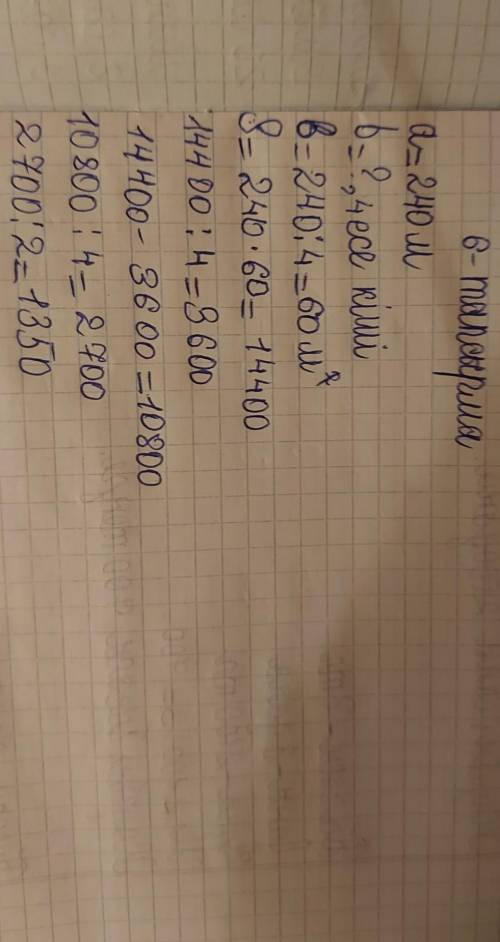 6-тапсырма
a=240м
b=?, 4 есе кіші
в=240:4=60м²
S=240·60=14400
14400:4=3600
14400-3600=10800
10800:4=2700
2700:2=1350